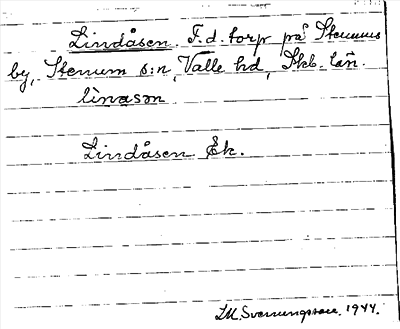 Lindåsen. F.d. torp på Stenums
by, Stenum s:n, Valle hd, Skb. län.
linasən
Lindåsen Ek.
I.M. Svenungsson. 1944.